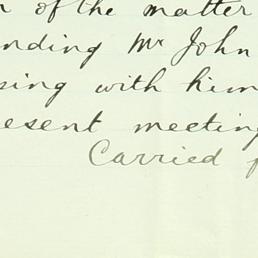 of the matter
nding Mr John
sing with him
resent meeting
Carried